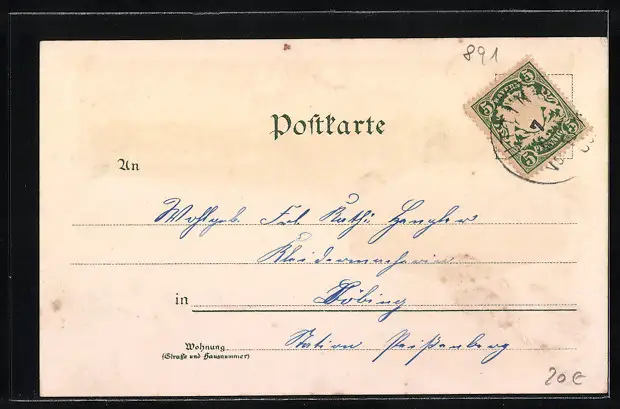 891
5 BAYERN 5
5 5
7
Postkarte
An
Wohlgeb. Frl. Kathi Hengler
Kleidermacherin
in Böbing
Wohnung
(Straße und Hausnummer)
Station Peißenberg
20€